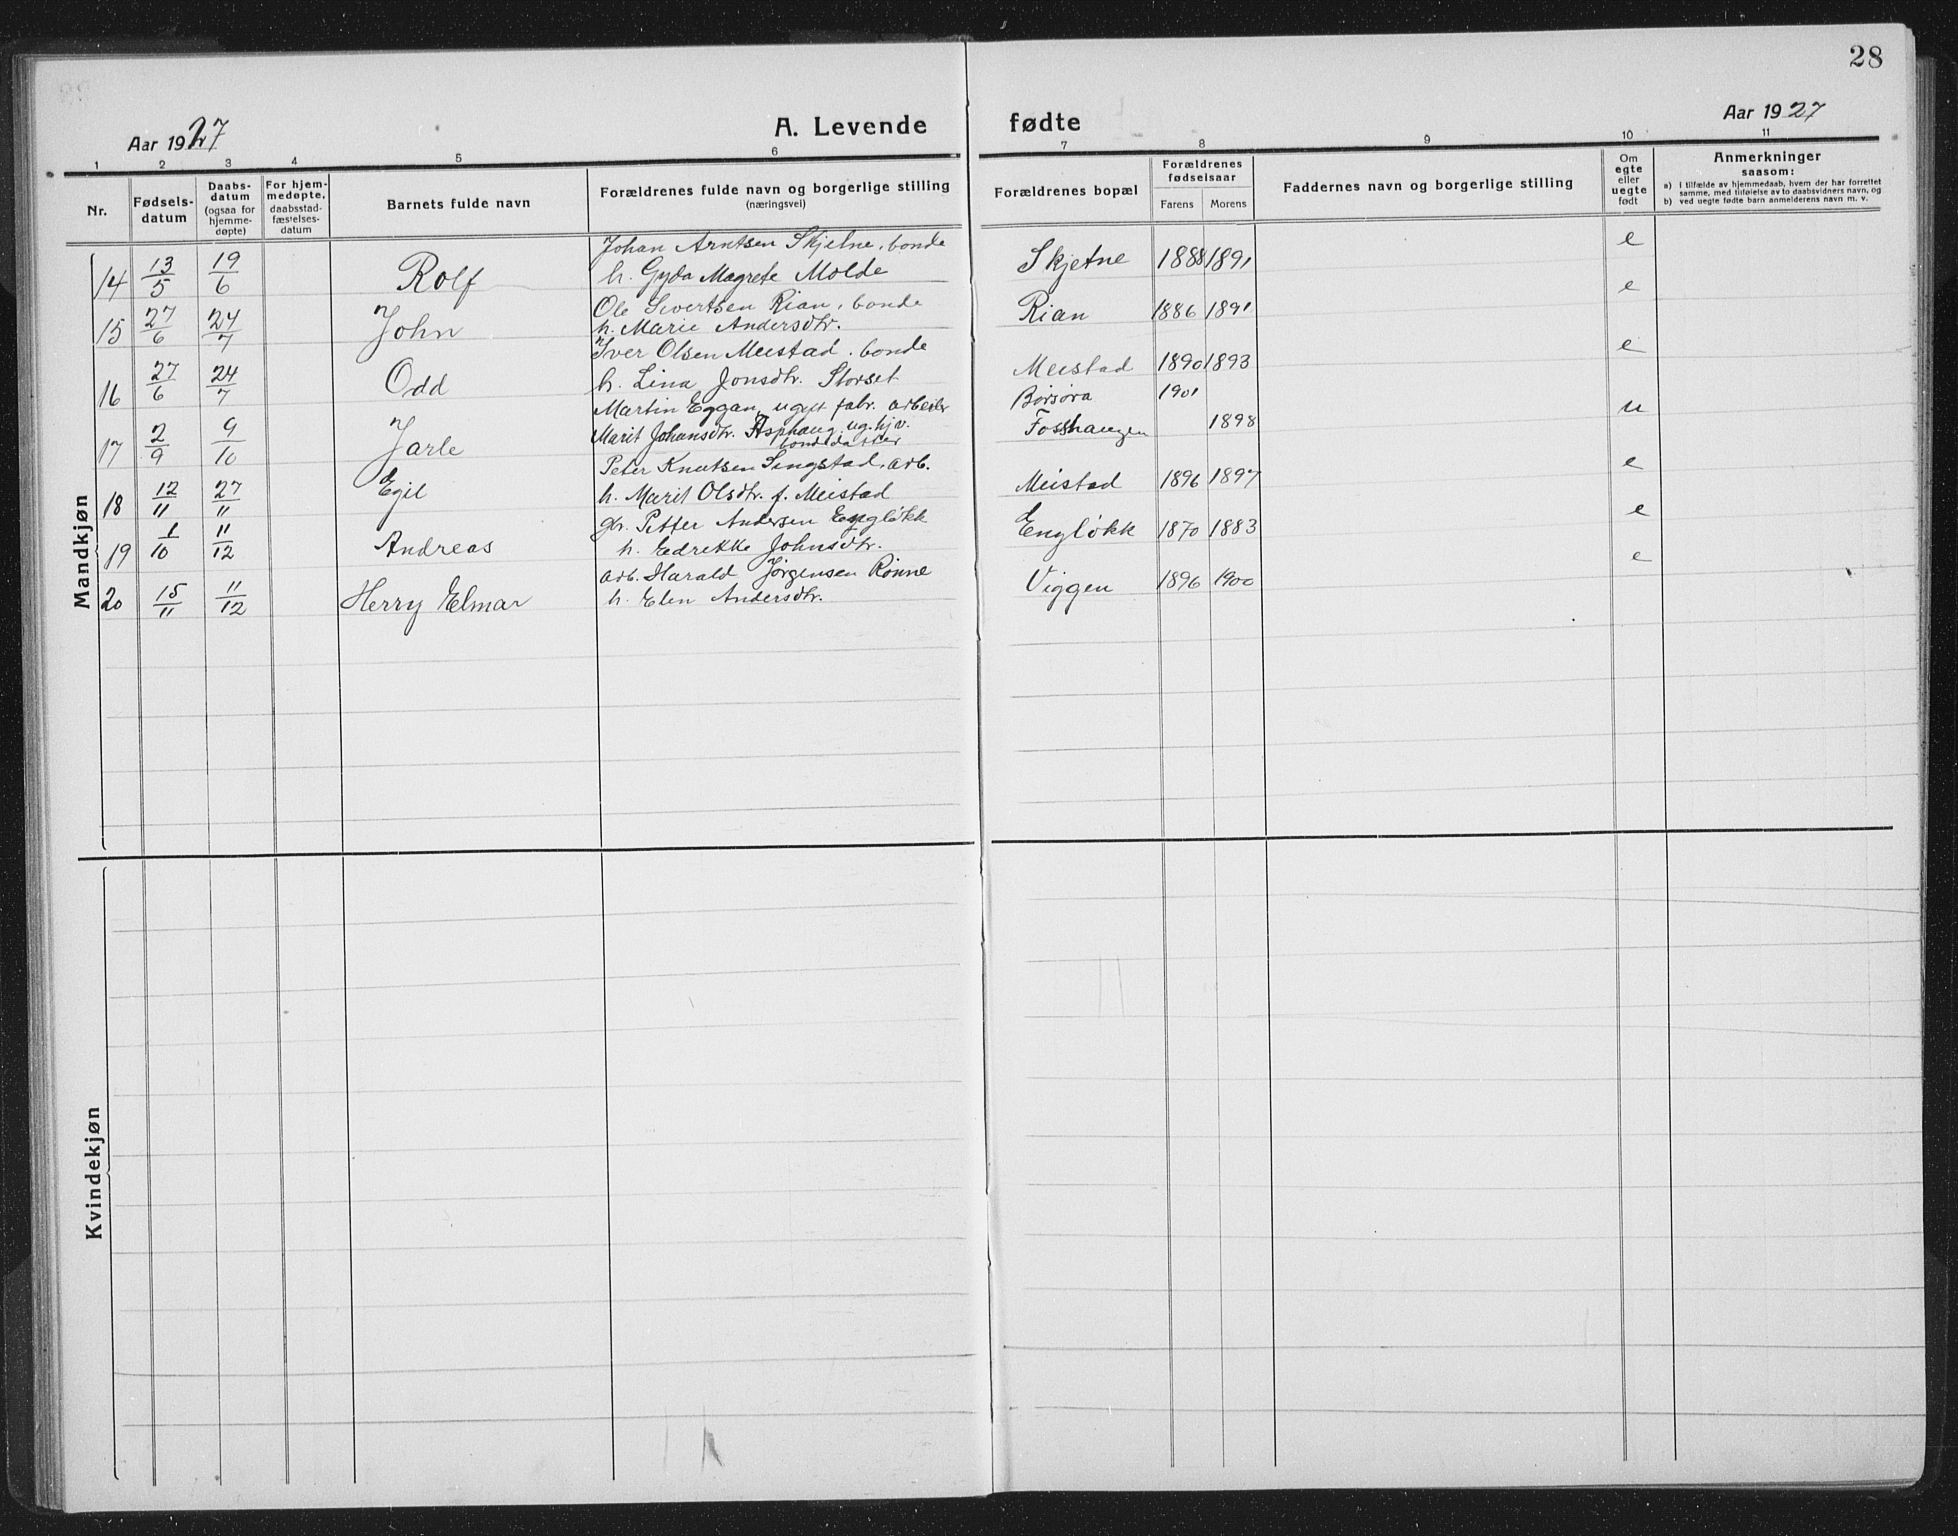 28
Aar 1927
A. Levende fødte
Aar 1927
1 2 3 4 5 6 7 8 9 10 11
Nr.
Fødsels-
datum
Daabs-
datum
(ogsaa for
hjemme-
døpte)
For hjem-
medøpte,
daabsstad-
fæstelses-
datum
Barnets fulde navn
Forældrenes fulde navn og borgerlige stilling
(næringsvei)
Forældrenes bopæl
Forældrenes
fødselsaar
Farens Morens
Faddernes navn og borgerlige stilling
Om
egte
eller
uegte
født
Anmerkninger
saasom:
a) I tilfælde av hjemmedaab, hvem der har forrettet
samme, med tilføielse av to daabsvidners navn, og
b) ved uegte fødte barn anmelderens navn m. v.
Mandkjøn
Johan Arntsen Skjetne, bonde
14 13/5 19/6 Rolf h. Gyda Magrete Molde Skjetne 1888 1891 e
Ole Sivertsen Rian, bonde
15 27/6 24/7 John h. Marie Andersdtr. Rian 1886 1891 e
Iver Olsen Meistad. bonde
16 27/6 24/7 Odd h. Lina Jonsdtr. Storset Meistad 1890 1893 e
Martin Eggan, ugift fabr. arbeider Børsøra 1901
17 2/9 9/10 Jarle Marit Johansdtr. Asphaug ug. hjv. Fosshaugen 1898 u
bondedatter
Peter Knutsen Singstad, arb.
18 12/11 27/11 Egil h. Marit Olsdtr. f. Meistad Meistad 1896 1897 e
gbr. Petter Andersen Engløkk
19 1/10 11/12 Andreas h. Edrikke Johnsdtr. Engløkk 1870 1883 e
arb. Harald Jørgensen Rønne
20 15/11 11/12 Herry Elmar h. Elen Andersdtr. Viggen 1896 1900 e
Kvindekjøn